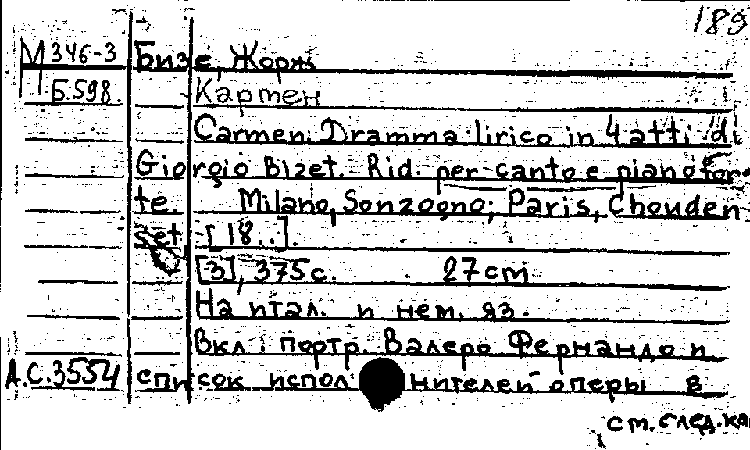 189
М 346-3 Бизе, Жорж
Б.598. Кармен
Carmen. Dramma lirico in 4 atti di
Giorgio Bizet. Rid. per canto e pianofor-
te. Milano, Sonzogno; Paris, Chouden
set [18..].
[3], 375 с. 27 cm
На итал. и нем. яз.
Вкл. портр. Валеро Фернандо и
А.С.3554 список исполнителей оперы в
см. след. ка